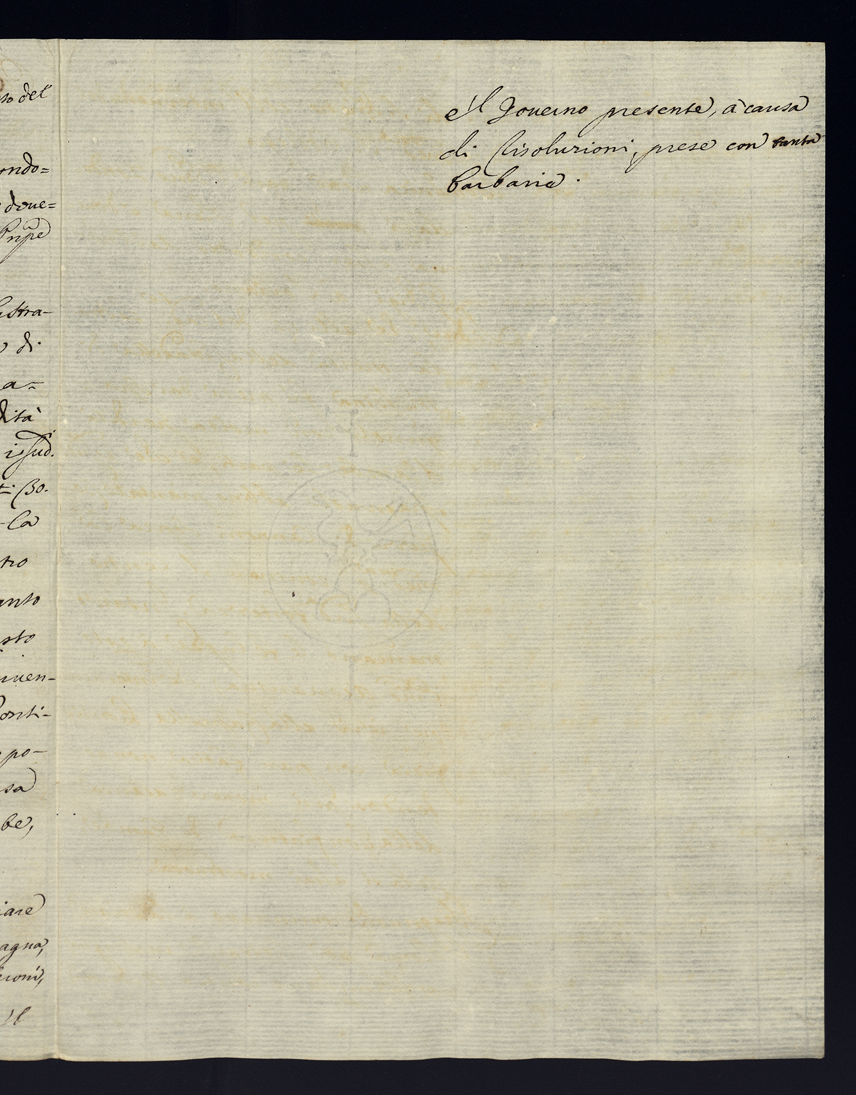 to del
ondo=
doue=
Prῆpe
stra-
di
a-
dità
Bo.
la
tro
anto
sto
uen-
onti-
po-
sa
be,
iare
agna,
ioni,
il
il Gouerno presente, à causa
di Risoluzioni, prese con tanta
barbarie.